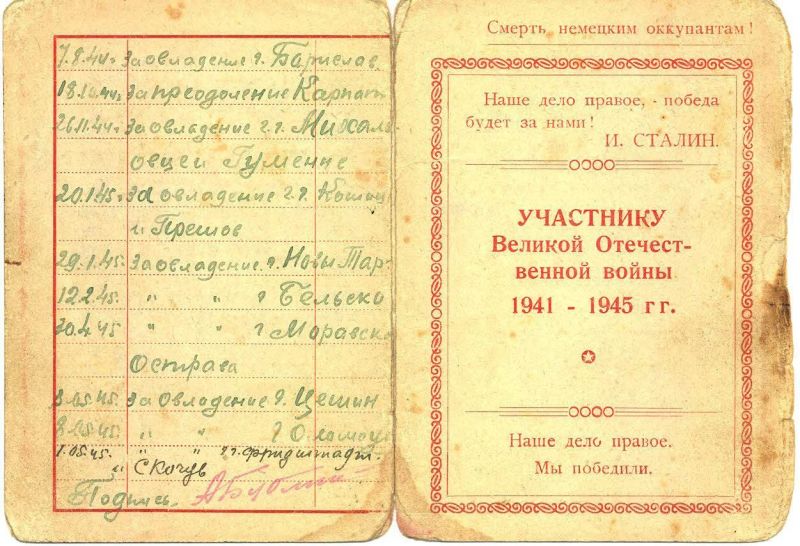 7.8.44г. За овладение г. Борислав
18.10.44г. За преодоление Карпат
26.11.44г. За овладение г.г. Михал-
овце и Гуменне
20.1.45г. За овладение г.г. Кошице
и Прешов
29.1.45. За овладение г. Новы Тар-
12.2.45. " " г Бельско
30.4.45 " " г Моравск
Острава
3.05.45. За овладение г. Цешин
8.05.45. " " г Оломоуц
1.05.45. " " г.г. Фридштадт.
" Скочув
Подпись.
Смерть немецким оккупантам!
Наше дело правое, - победа
будет за нами!
И. СТАЛИН.
УЧАСТНИКУ
Великой Отечест-
венной войны
1941 - 1945 гг.
Наше дело правое.
Мы победили.